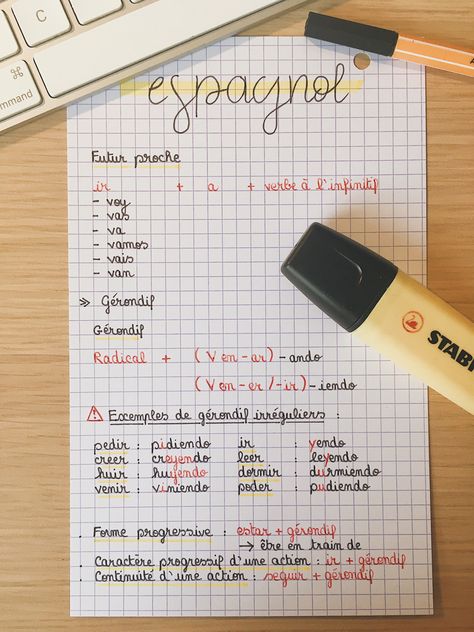 C
⌘
command
espagnol
Futur proche
ir + a + verbe à l'infinitif
- voy
- vas
- va
- vamos
- vais
- van
» Gérondif
Gérondif
Radical + (V en -ar) - ando
(V en -er / -ir) - iendo
⚠ Exemples de gérondif irréguliers :
pedir : pidiendo ir : yendo
creer : creyendo leer : leyendo
huir : huyendo dormir : durmiendo
venir : viniendo poder : pudiendo
. Forme progressive : estar + gérondif
→ être en train de
. Caractère progressif d'une action : ir + gérondif
. Continuité d'une action : seguir + gérondif
STAB